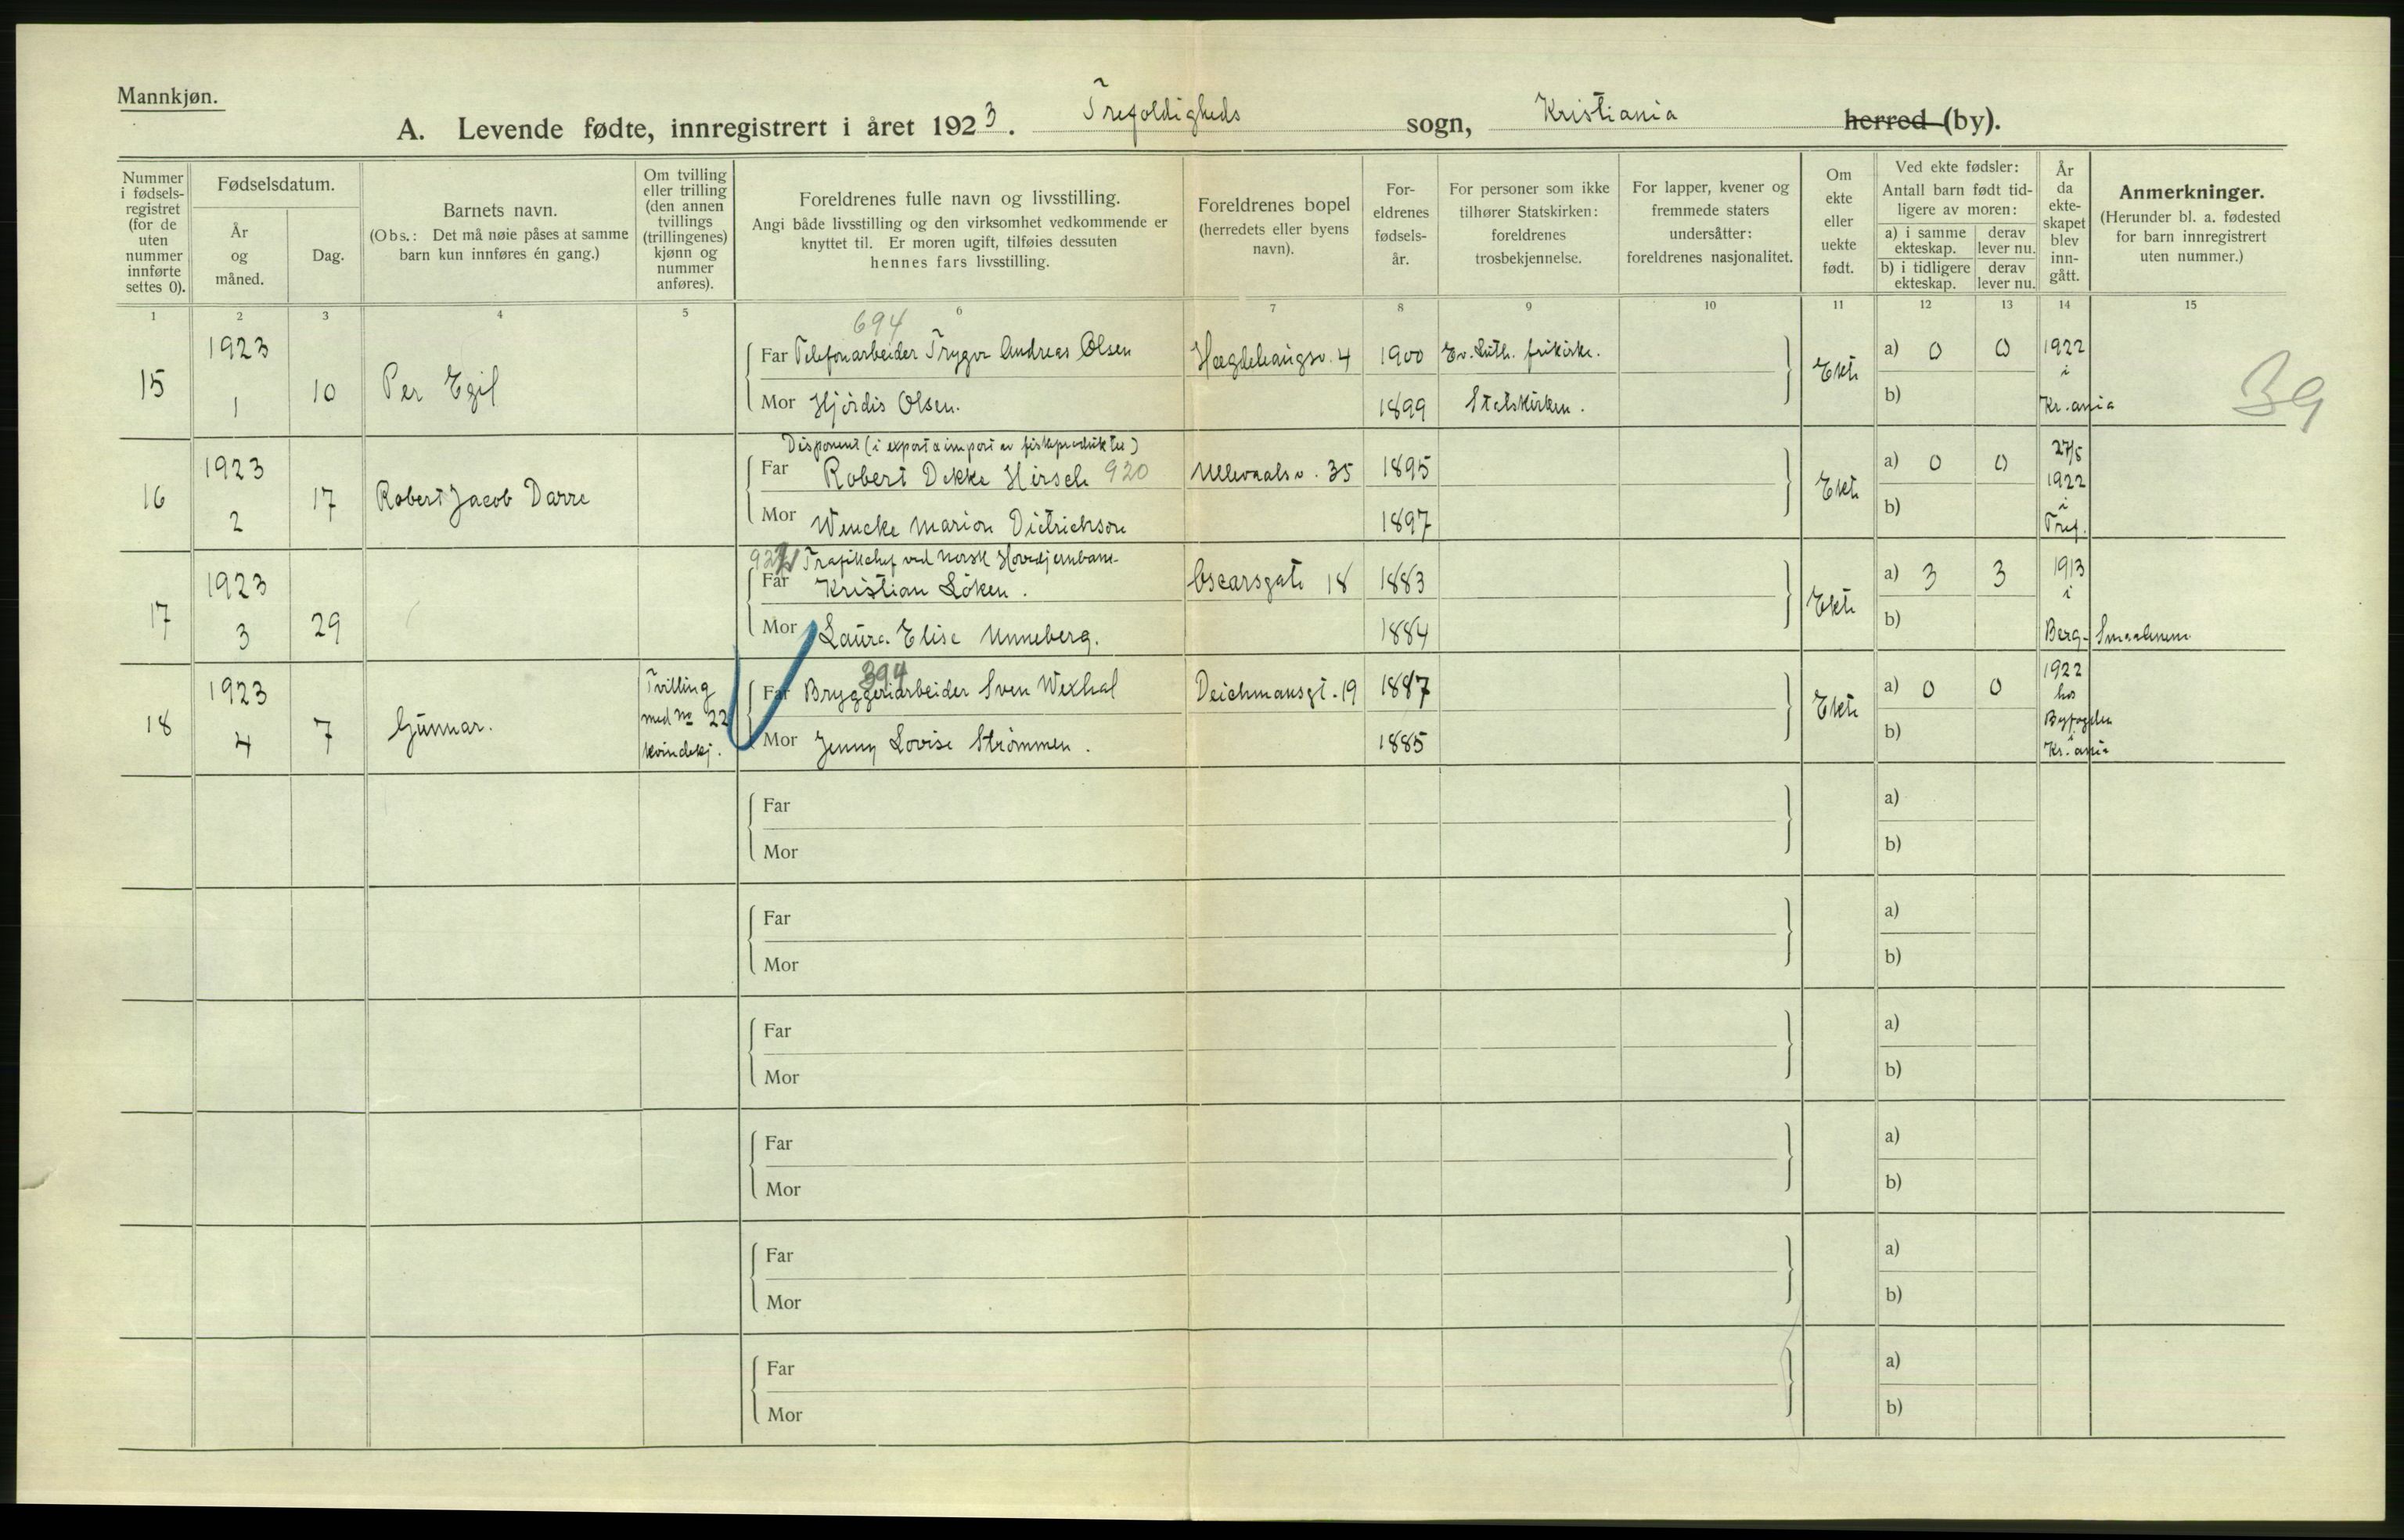 Mannkjøn.
A. Levende fødte, innregistrert i året 1923. Trefoldigheds sogn, Kristiania herred (by).
Nummer i fødsels-registret (for de uten nummer innførte settes 0).
Fødselsdatum.
År og måned.
Dag.
Barnets navn.
(Obs.: Det må nøie påses at samme barn kun innføres én gang.)
Om tvilling eller trilling (den annen tvillings (trillingenes) kjønn og nummer anføres).
Foreldrenes fulle navn og livsstilling.
Angi både livsstilling og den virksomhet vedkommende er knyttet til. Er moren ugift, tilføies dessuten hennes fars livsstilling.
Foreldrenes bopel (herredets eller byens navn).
For-eldrenes fødsels-år.
For personer som ikke tilhører Statskirken: foreldrenes trosbekjennelse.
For lapper, kvener og fremmede staters undersåtter: foreldrenes nasjonalitet.
Om ekte eller uekte født.
Ved ekte fødsler:
Antall barn født tid-ligere av moren:
a) i samme ekteskap.
derav lever nu.
b) i tidligere ekteskap.
derav lever nu.
År da ekte-skapet blev inn-gått.
Anmerkninger.
(Herunder bl. a. fødested for barn innregistrert uten nummer.)
1 2 3 4 5 6 7 8 9 10 11 12 13 14 15
694
15 1923 1 10 Per Egil
Far Telefonarbeider Trygve Andreas Olsen Hægdehaugsv. 4 1900 Ev. Luth. frikirke.
Mor Hjördis Olsen. 1899 Statskirken.
Ekte a) 0 0 b) 1922 i Kr.ania
39
16 1923 2 17 Robert Jacob Darre
Disponent (i export & import av fiskeprodukter)
Far Robert Dekke Hirsch 920 Ullevaalsv. 35 1895
Mor Wencke Marion Dietrichson 1897
Ekte a) 0 0 b) 27/5 1922 i Tref.
17 1923 3 29
Trafikchef ved Norsk Hovedjernbane
Far Kristian Löken. Oscarsgate 18 1883
Mor Laura Elise Unneberg. 1884
Ekte a) 3 3 b) 1913 i Berg - Smaalenene
18 1923 4 7 Gunnar. Tvilling med No 22 kvindekj.
394
Far Bryggeriarbeider Sven Wexhal Deichmansgt. 19 1887
Mor Jenny Lovise Strömmen. 1885
Ekte a) 0 0 b) 1922 hos Byfogden i Kr.ania
Far a)
Mor b)
Far a)
Mor b)
Far a)
Mor b)
Far a)
Mor b)
Far a)
Mor b)
Far a)
Mor b)